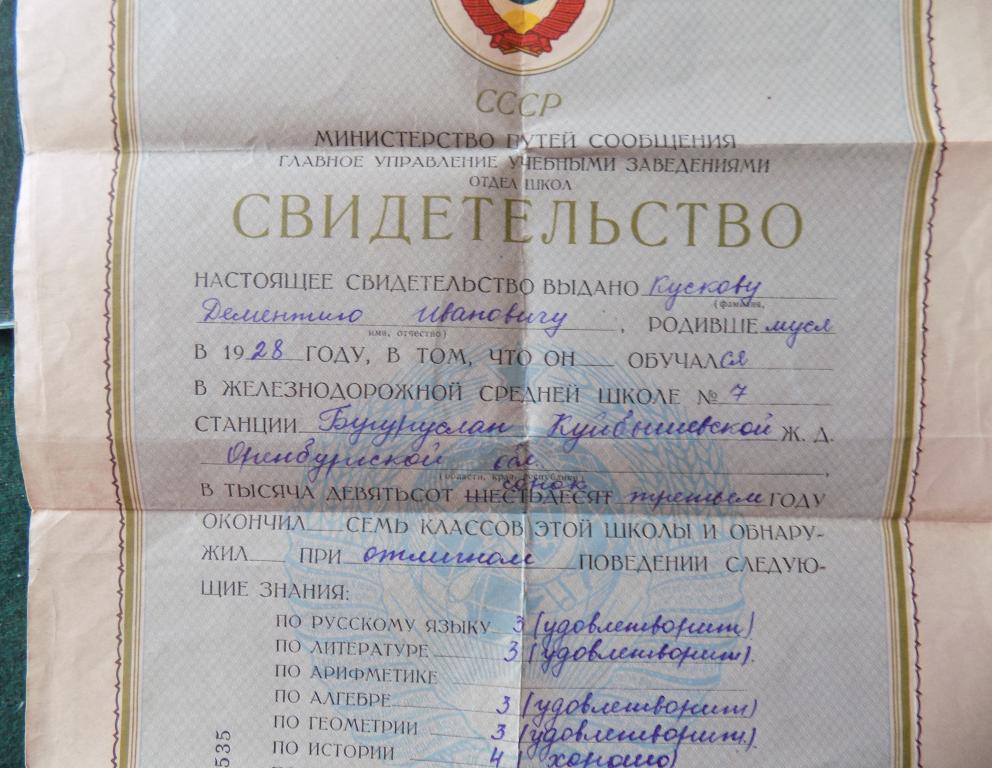 СССР
МИНИСТЕРСТВО ПУТЕЙ СООБЩЕНИЯ
ГЛАВНОЕ УПРАВЛЕНИЕ УЧЕБНЫМИ ЗАВЕДЕНИЯМИ
ОТДЕЛ ШКОЛ
СВИДЕТЕЛЬСТВО
НАСТОЯЩЕЕ СВИДЕТЕЛЬСТВО ВЫДАНО Кускову
(фамилия,
Дементию Ивановичу, РОДИВШЕмуся
имя, отчество)
В 1928 ГОДУ, В ТОМ, ЧТО ОН ОБУЧАЛся
В ЖЕЛЕЗНОДОРОЖНОЙ СРЕДНЕЙ ШКОЛЕ № 7
СТАНЦИИ Бугуруслан Куйбышевской Ж. Д.
Оренбургской обл.,
(области, края, республики)
сорок
В ТЫСЯЧА ДЕВЯТЬСОТ ШЕСТЬДЕСЯТ третьем ГОДУ
ОКОНЧИЛ СЕМЬ КЛАССОВ ЭТОЙ ШКОЛЫ И ОБНАРУ-
ЖИЛ ПРИ отличном ПОВЕДЕНИИ СЛЕДУЮ-
ЩИЕ ЗНАНИЯ:
ПО РУССКОМУ ЯЗЫКУ 3 (удовлетворит)
ПО ЛИТЕРАТУРЕ 3 (удовлетворит).
ПО АРИФМЕТИКЕ
ПО АЛГЕБРЕ 3 (удовлетворит)
ПО ГЕОМЕТРИИ 3 (удовлетворит.)
ПО ИСТОРИИ 4 (хорошо)
535